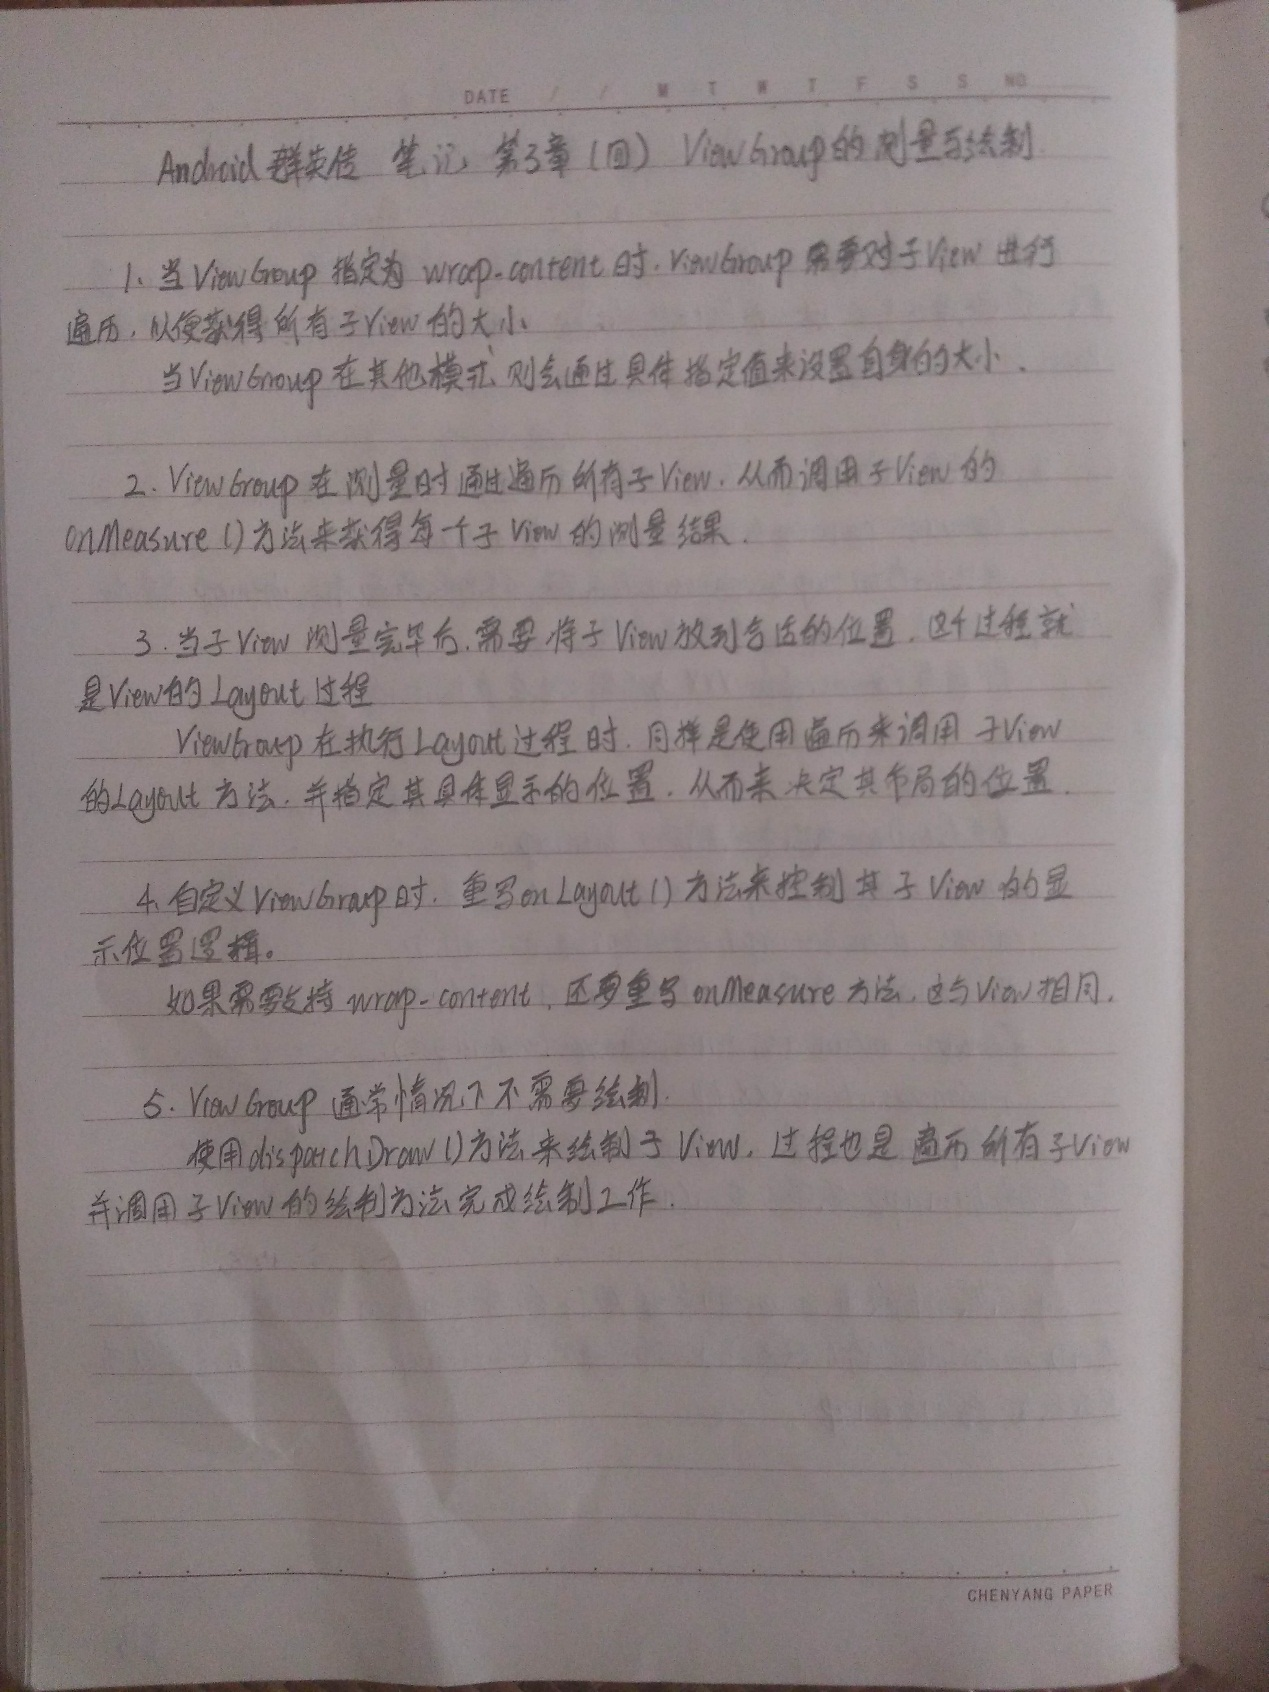 DATE / / M T W T F S S NO
Android 群英传 笔记 第3章 (四) ViewGroup的测量与绘制
1、当ViewGroup 指定为 wrap-content时.ViewGroup 需要对子View 进行
遍历,以便获得所有子View的大小
当ViewGroup在其他模式 则会通过具体指定值来设置自身的大小.
2.ViewGroup在测量时通过遍历所有子View.从而调用子View的
onMeasure()方法来获得每一个子View的测量结果.
3.当子View 测量完毕后,需要将子View放到合适的位置.这个过程就
是View的Layout过程
ViewGroup在执行Layout过程时.同样是使用遍历来调用子View
的Layout方法.并指定其具体显示的位置.从而来决定其布局的位置.
4、自定义ViewGroup时.重写onLayout()方法来控制其子View的显
示位置逻辑。
如果需要支持wrap-content,还要重写onMeasure方法.这与View相同.
5.ViewGroup通常情况下不需要绘制.
使用dispatchDraw()方法来绘制子View.过程也是遍历所有子View
并调用子View的绘制方法完成绘制工作.
CHENYANG PAPER